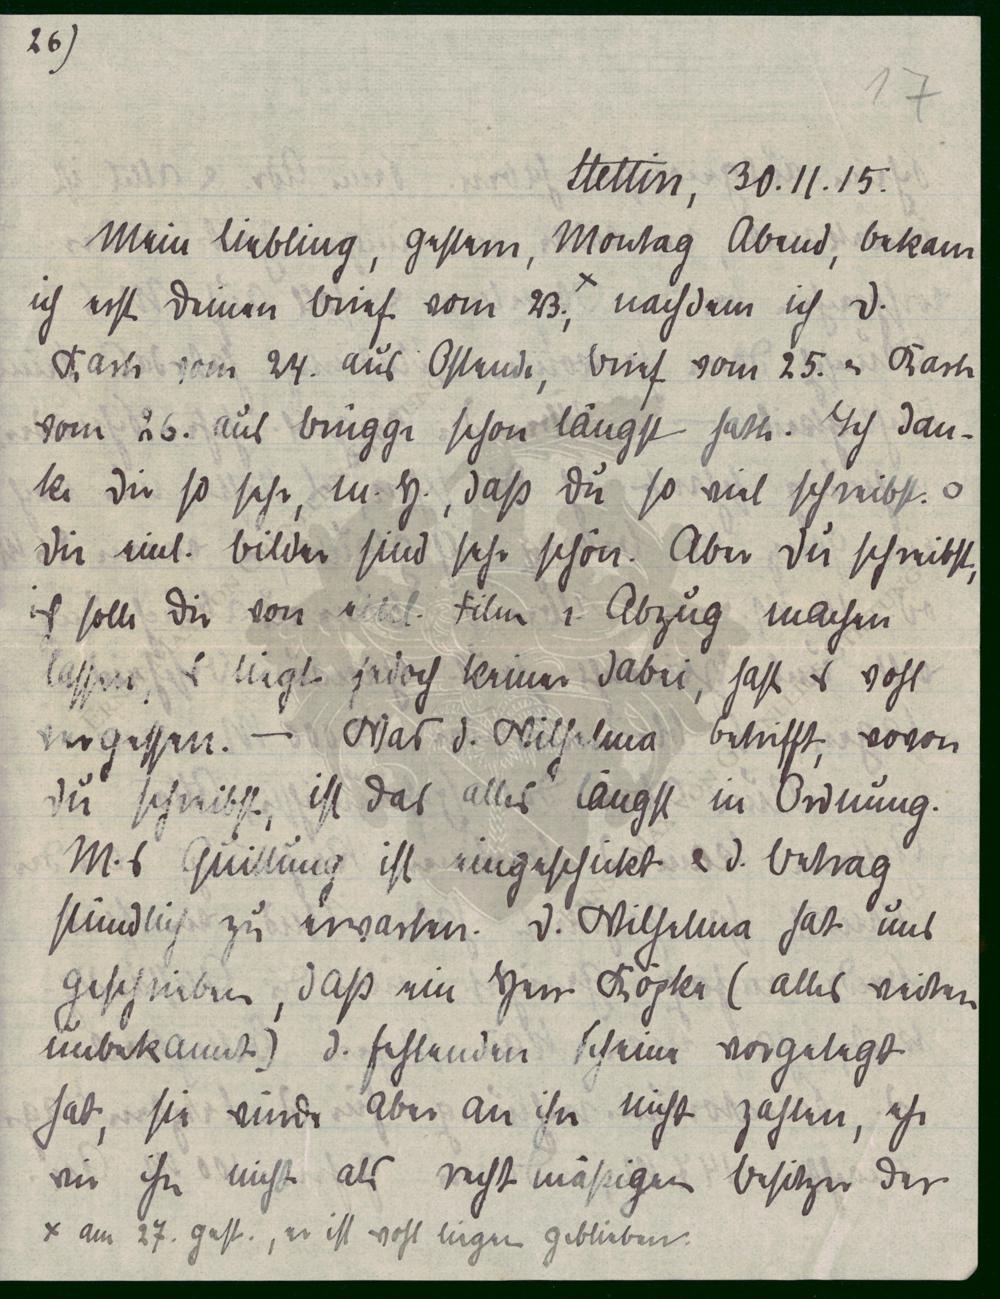 26)
17
Stettin, 30.11.15.
Mein Liebling, gestern, Montag Abend, bekam
ich erst Deinen Brief vom 23.,× nachdem ich d.
Karte vom 24. aus Ostende, Brief vom 25. u Karte
vom 26. aus Brügge schon längst hatte. Ich dan-
ke Dir so sehr, m. H., daß Du so viel schreibst. o
Die einl. Bilder sind sehr schön. Aber Du schreibst,
ich solle Dir von einl. Film 1 Abzug machen
lassen, es liegt jedoch keiner dabei, hast es wohl
vergessen. — Was d. Wilhelma betrifft, wovon
Du schreibst, ist das alles längst in Ordnung.
M's Quittung ist eingeschickt u d. Betrag
stündlich zu erwarten. D. Wilhelma hat uns
geschrieben, daß ein Herr Köpke (alles weitere
unbekannt) d. fehlenden Scheine vorgelegt
hat, sie würde aber an ihn nicht zahlen, ehe
wir ihn nicht als rechtmäßigen Besitzer der
× am 27. gest., er ist wohl liegen geblieben.